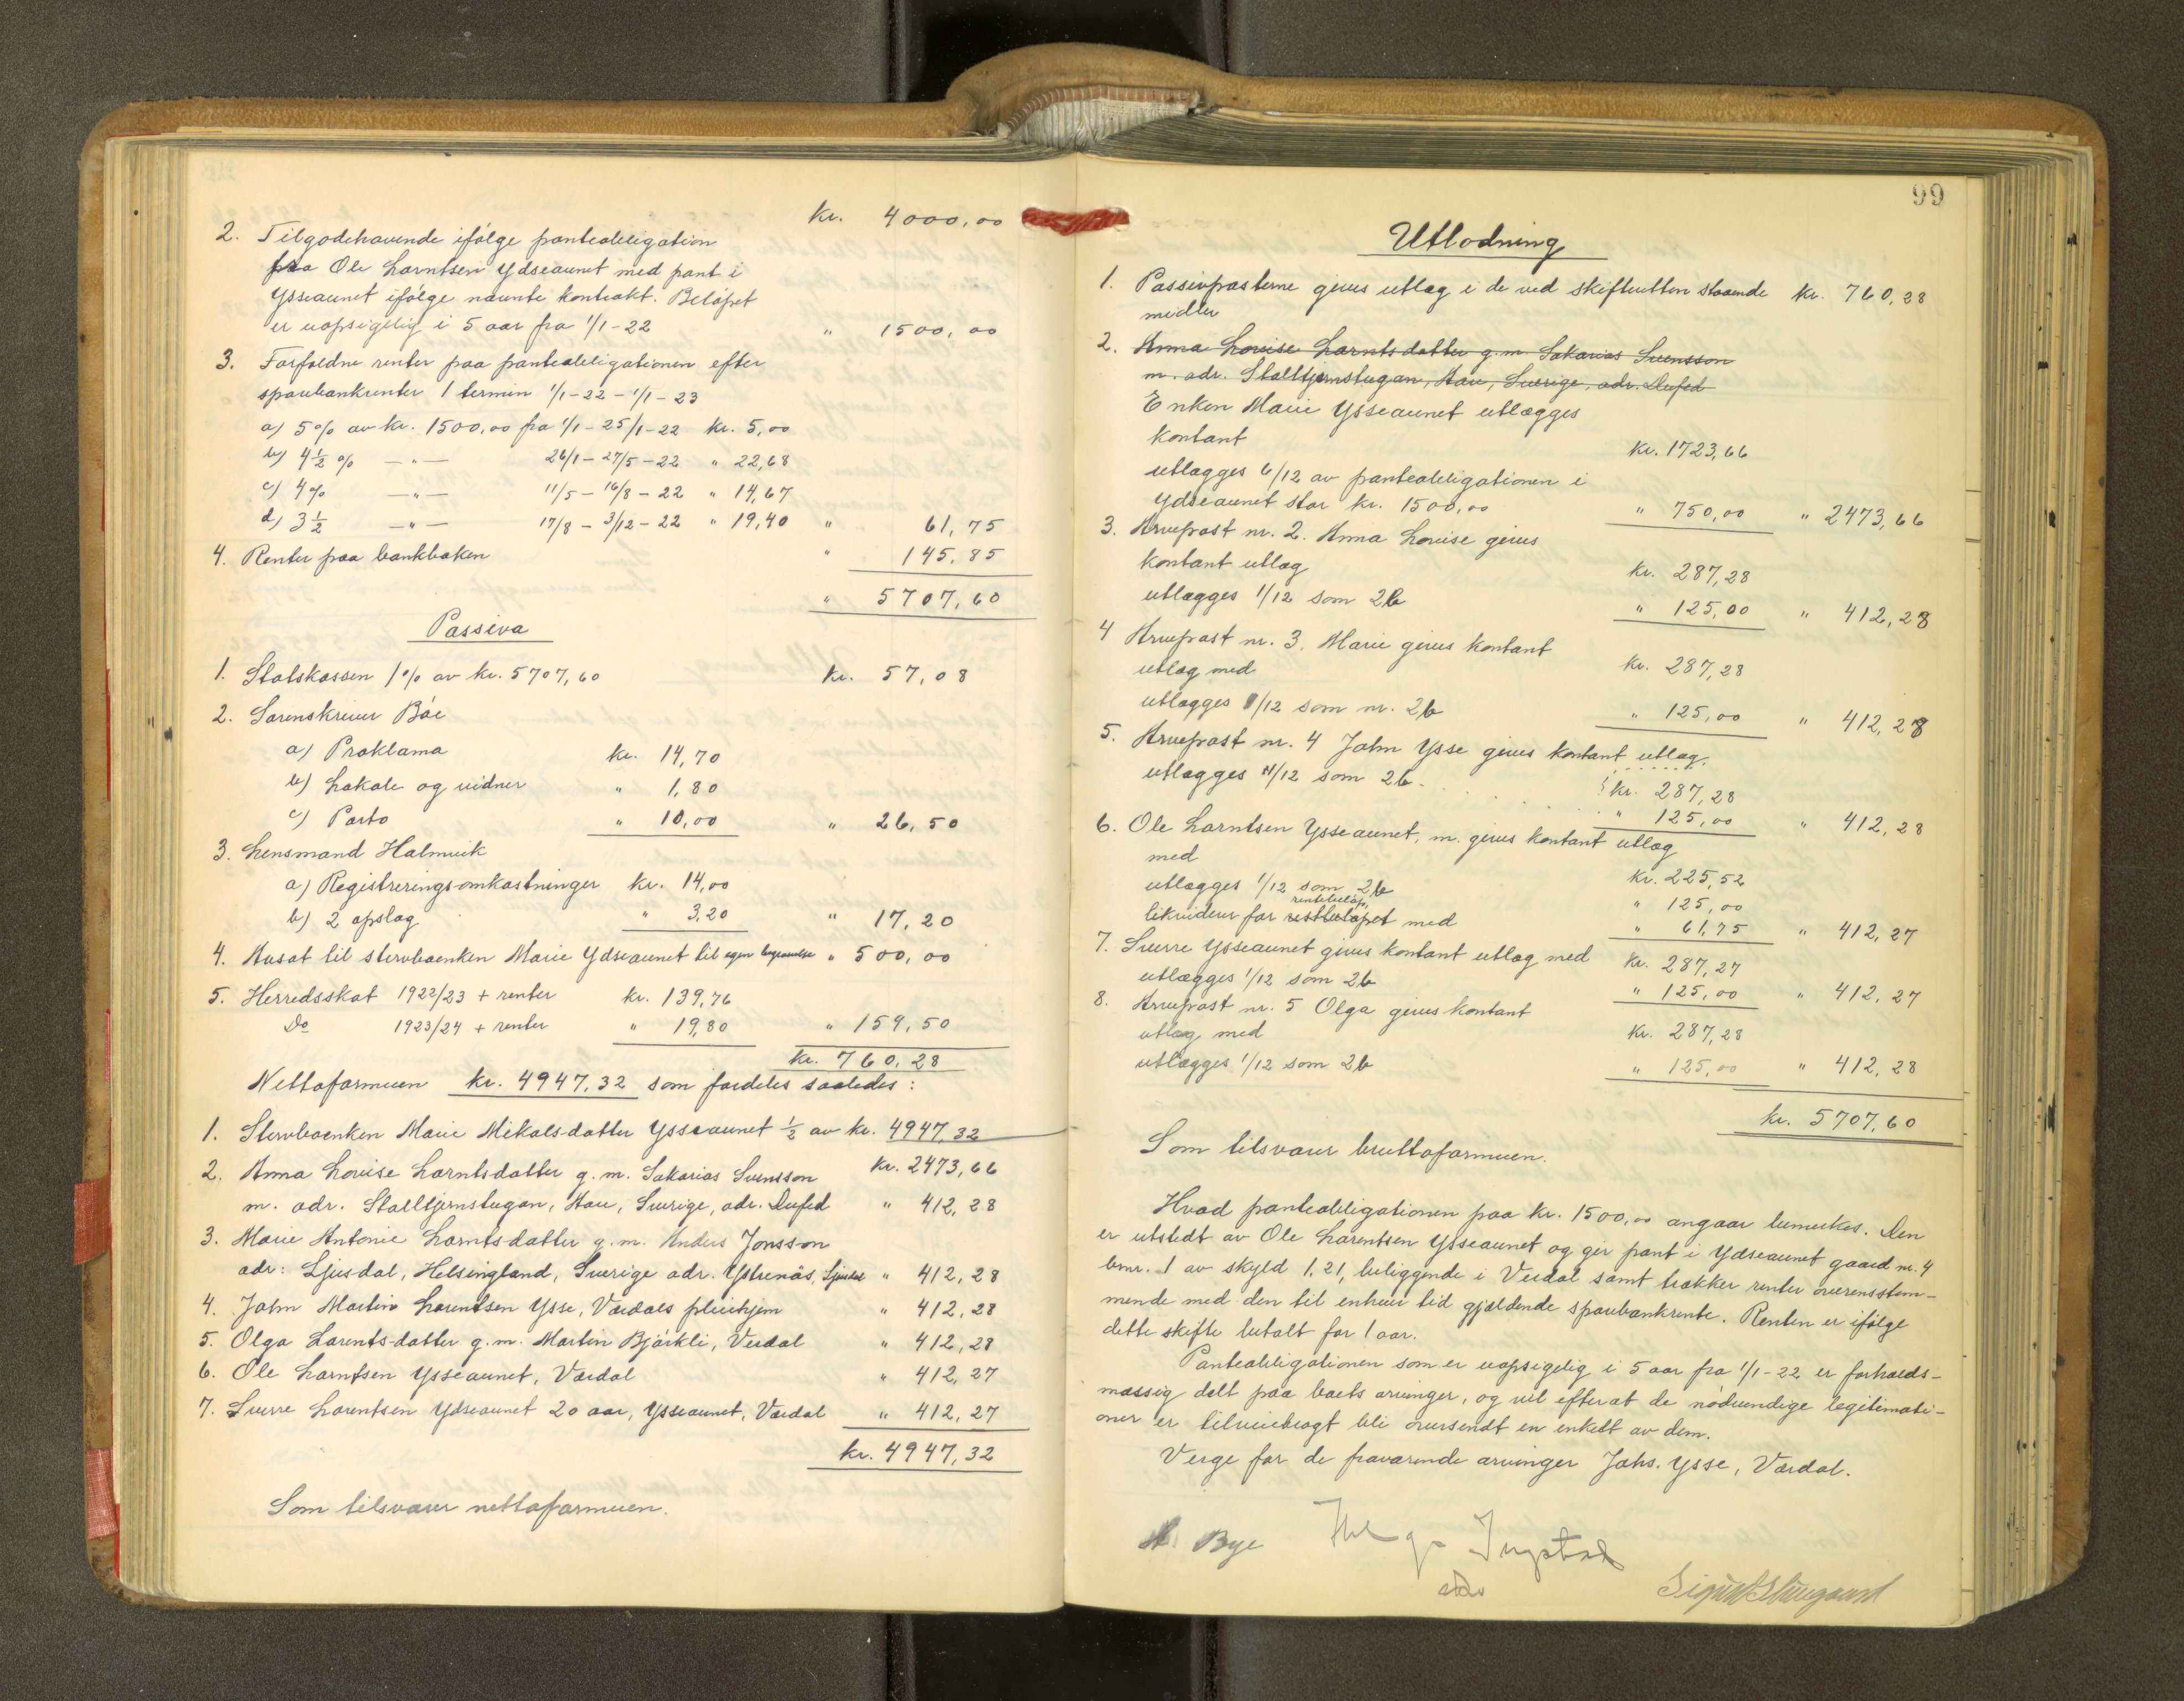 kr. 4000,00
2. Tilgodehavende ifølge panteobligation
fra Ole Larntsen Ydseaunet med pant i
Ysseaunet ifølge nævnte kontrakt. Beløpet
er uopsigelig i 5 aar fra 1/1-22 " 1500,00
3. Forfaldne renter paa panteobligationen efter
sparebankrenter 1 termin 1/1-22 - 1/1-23
a) 5% av kr. 1500,00 fra 1/1-25/1-22 kr. 5,00
b) 4½ % —"— 26/1-27/5-22 " 22,68
c) 4% —"— 11/5-16/8-22 " 14,67
d) 3½ —"— 17/8-3/12-22 " 19,40 " 61,75
4. Renter paa bankboken " 145,85
" 5707,60
Passiva
1. Statskassen 1% av kr. 5707,60 kr. 57,08
2. Sorenskriver Bøe
a) Proklama kr. 14,70
b) Lokale og vidner " 1,80
c) Porto " 10,00 " 26,50
3. Lensmand Halmvik
a) Registreringsomkostninger kr. 14,00
b) 2 opslag " 3,20 " 17,20
4. Avsat til stervboenken Marie Ydseaunet til egen begravelse " 500,00
5. Herredsskat 1922/23 + renter kr. 139,76
Do 1923/24 + renter " 19,80 " 159,50
kr. 760,28
Nettoformuen kr. 4947,32 som fordeles saaledes:
1. Stervboenken Marie Mikalsdatter Ysseaunet ½ av kr. 4947,32
kr. 2473,66
2. Anna Lovise Larntsdatter g.m. Sakarias Svensson
m. adr. Stalltjernstugan, Aan, Sverige, adr. Dufed " 412,28
3. Marie Antonie Larntsdatter g.m. Anders Jonsson
adr: Ljusdal, Helsingland, Sverige adr. Ystenäs, Ljusdal " 412,28
4. John Martin Larentsen Ysse, Værdals pleiehjem " 412,28
5. Olga Larents-datter g.m. Martin Bjørkli, Verdal " 412,28
6. Ole Larntsen Ysseaunet, Værdal " 412,27
7. Sverre Larentsen Ydseaunet 20 aar, Ysseaunet, Værdal " 412,27
kr. 4947,32
Som tilsvarer nettoformuen.
99
Utlodning
1. Passivposterne gives utlæg i de ved skifteretten staaende kr. 760,28
midler
2. Anna Lovise Larntsdatter g.m. Sakarias Svensson
m. adr. Stalltjernstugan, Aan, Sverige, adr. Dufed
Enken Marie Ysseaunet utlægges
kontant kr. 1723,66
utlægges 6/12 av panteobligationen i
Ydseaunet stor kr. 1500,00 " 750,00 " 2473,66
3. Arvepost nr. 2. Anna Lovise gives
kontant utlæg kr. 287,28
utlægges 1/12 som 2b " 125,00 " 412,28
4 Arvepost nr. 3. Marie gives kontant
utlæg med kr. 287,28
utlægges 1/12 som nr. 2b " 125,00 " 412,28
5. Arvepost nr. 4 John Ysse gives kontant utlæg.
kr. 287,28
utlægges 1/12 som 2b. " 125,00 " 412,28
6. Ole Larntsen Ysseaunet, m. gives kontant utlæg
med kr. 225,52
utlægges 1/12 som 2b " 125,00
rentebeløp,
likviderer for restbeløpet med " 61,75 " 412,27
7. Sverre Ysseaunet gives kontant utlæg med kr. 287,27
utlægges 1/12 som 2b " 125,00 " 412,27
8. Arvepost nr. 5 Olga gives kontant
utlæg med kr. 287,28
utlægges 1/12 som 2b " 125,00 " 412,28
kr. 5707,60
Som tilsvarer bruttoformuen.
Hvad panteobligationen paa kr. 1500,00 angaar bemerkes. Den
er utstedt av Ole Larentsen Ysseaunet og gir pant i Ydseaunet gaard nr. 4
bnr. 1 av skyld 1,21, beliggende i Verdal samt trækker renter overensstem-
mende med den til enhver tid gjældende sparebankrente. Renten er ifølge
dette skifte betalt for 1 aar.
Panteobligationen som er uopsigelig i 5 aar fra 1/1-22 er forholds-
mæssig delt paa boets arvinger, og vil efterat de nødvendige legitimati-
oner er tilveiebragt bli oversendt en enkelt av dem.
Verge for de fraværende arvinger Johs. Ysse, Værdal.
A. Bye Helge Ingstad
Sigurd